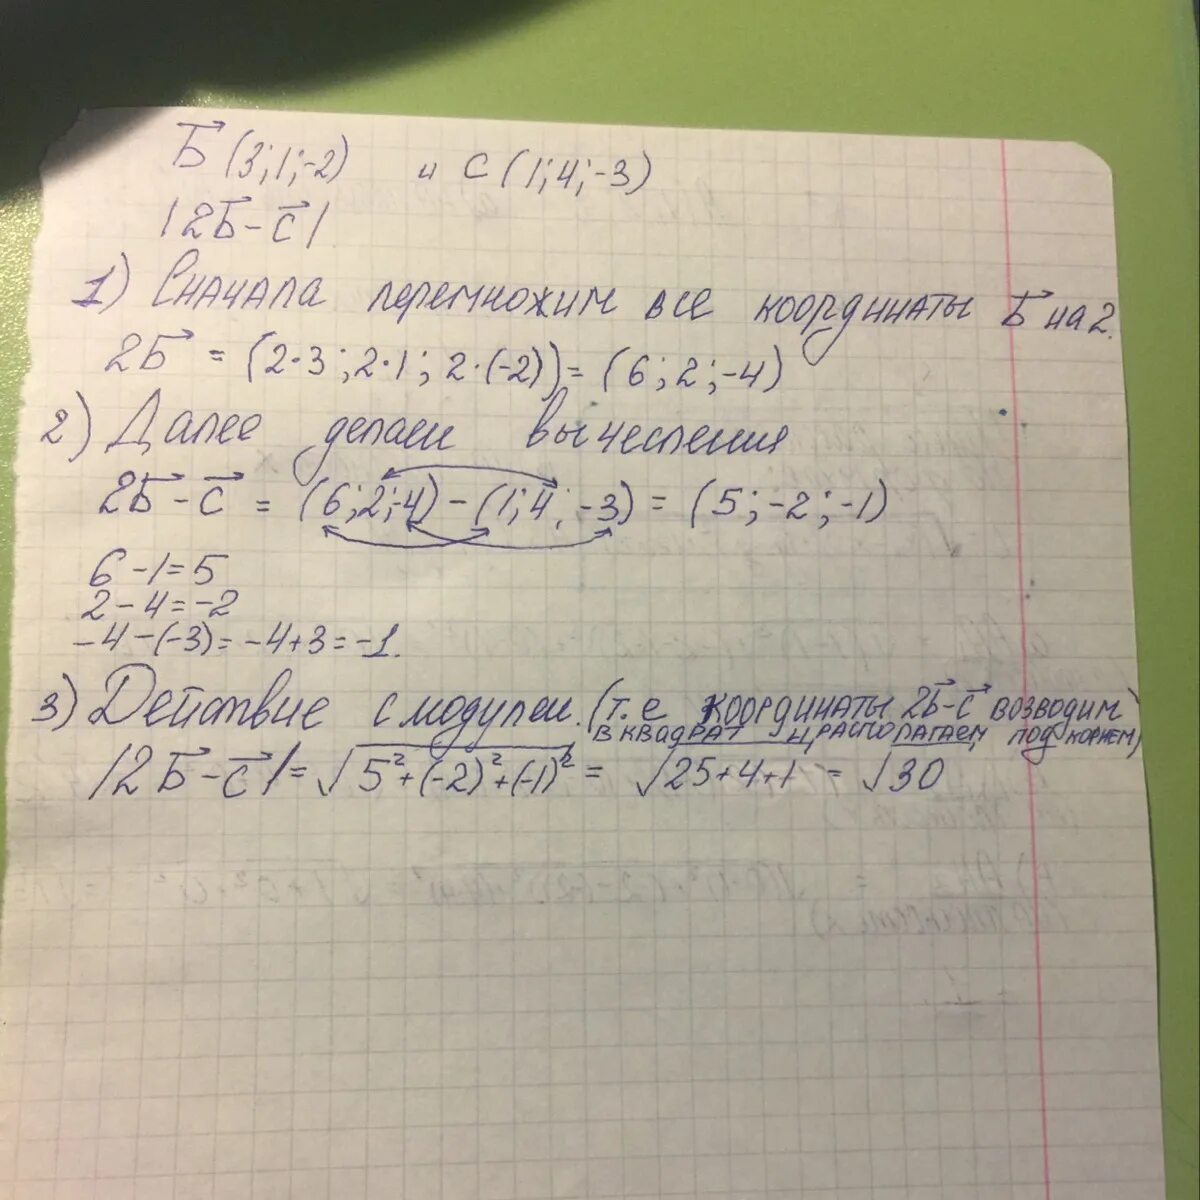 Б⃗ (3; 1; -2) и С (1; 4; -3)
|2Б⃗ - с⃗|
1) Сначала перемножим все координаты Б⃗ на 2.
2Б⃗ = (2·3; 2·1; 2·(-2)) = (6; 2; -4)
2) Далее делаем вычесления
2Б⃗ - с⃗ = (6; 2; -4) - (1; 4; -3) = (5; -2; -1)
6 - 1 = 5
2 - 4 = -2
-4 - (-3) = -4 + 3 = -1.
3) Действие с модулем. (т.е координаты 2Б⃗-с⃗ возводим
в квадрат и располагаем под корнем)
|2Б⃗ - с⃗| = √5² + (-2)² + (-1)² = √25 + 4 + 1 = √30